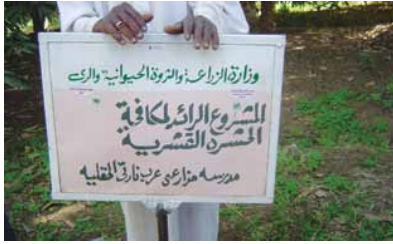 وزارة الزراعة والثروة الحيوانية والرى
المشروع الرائد لمكافحة
الحشرة القشرية
مدرسه مزارعى غرب فارق الحقليه